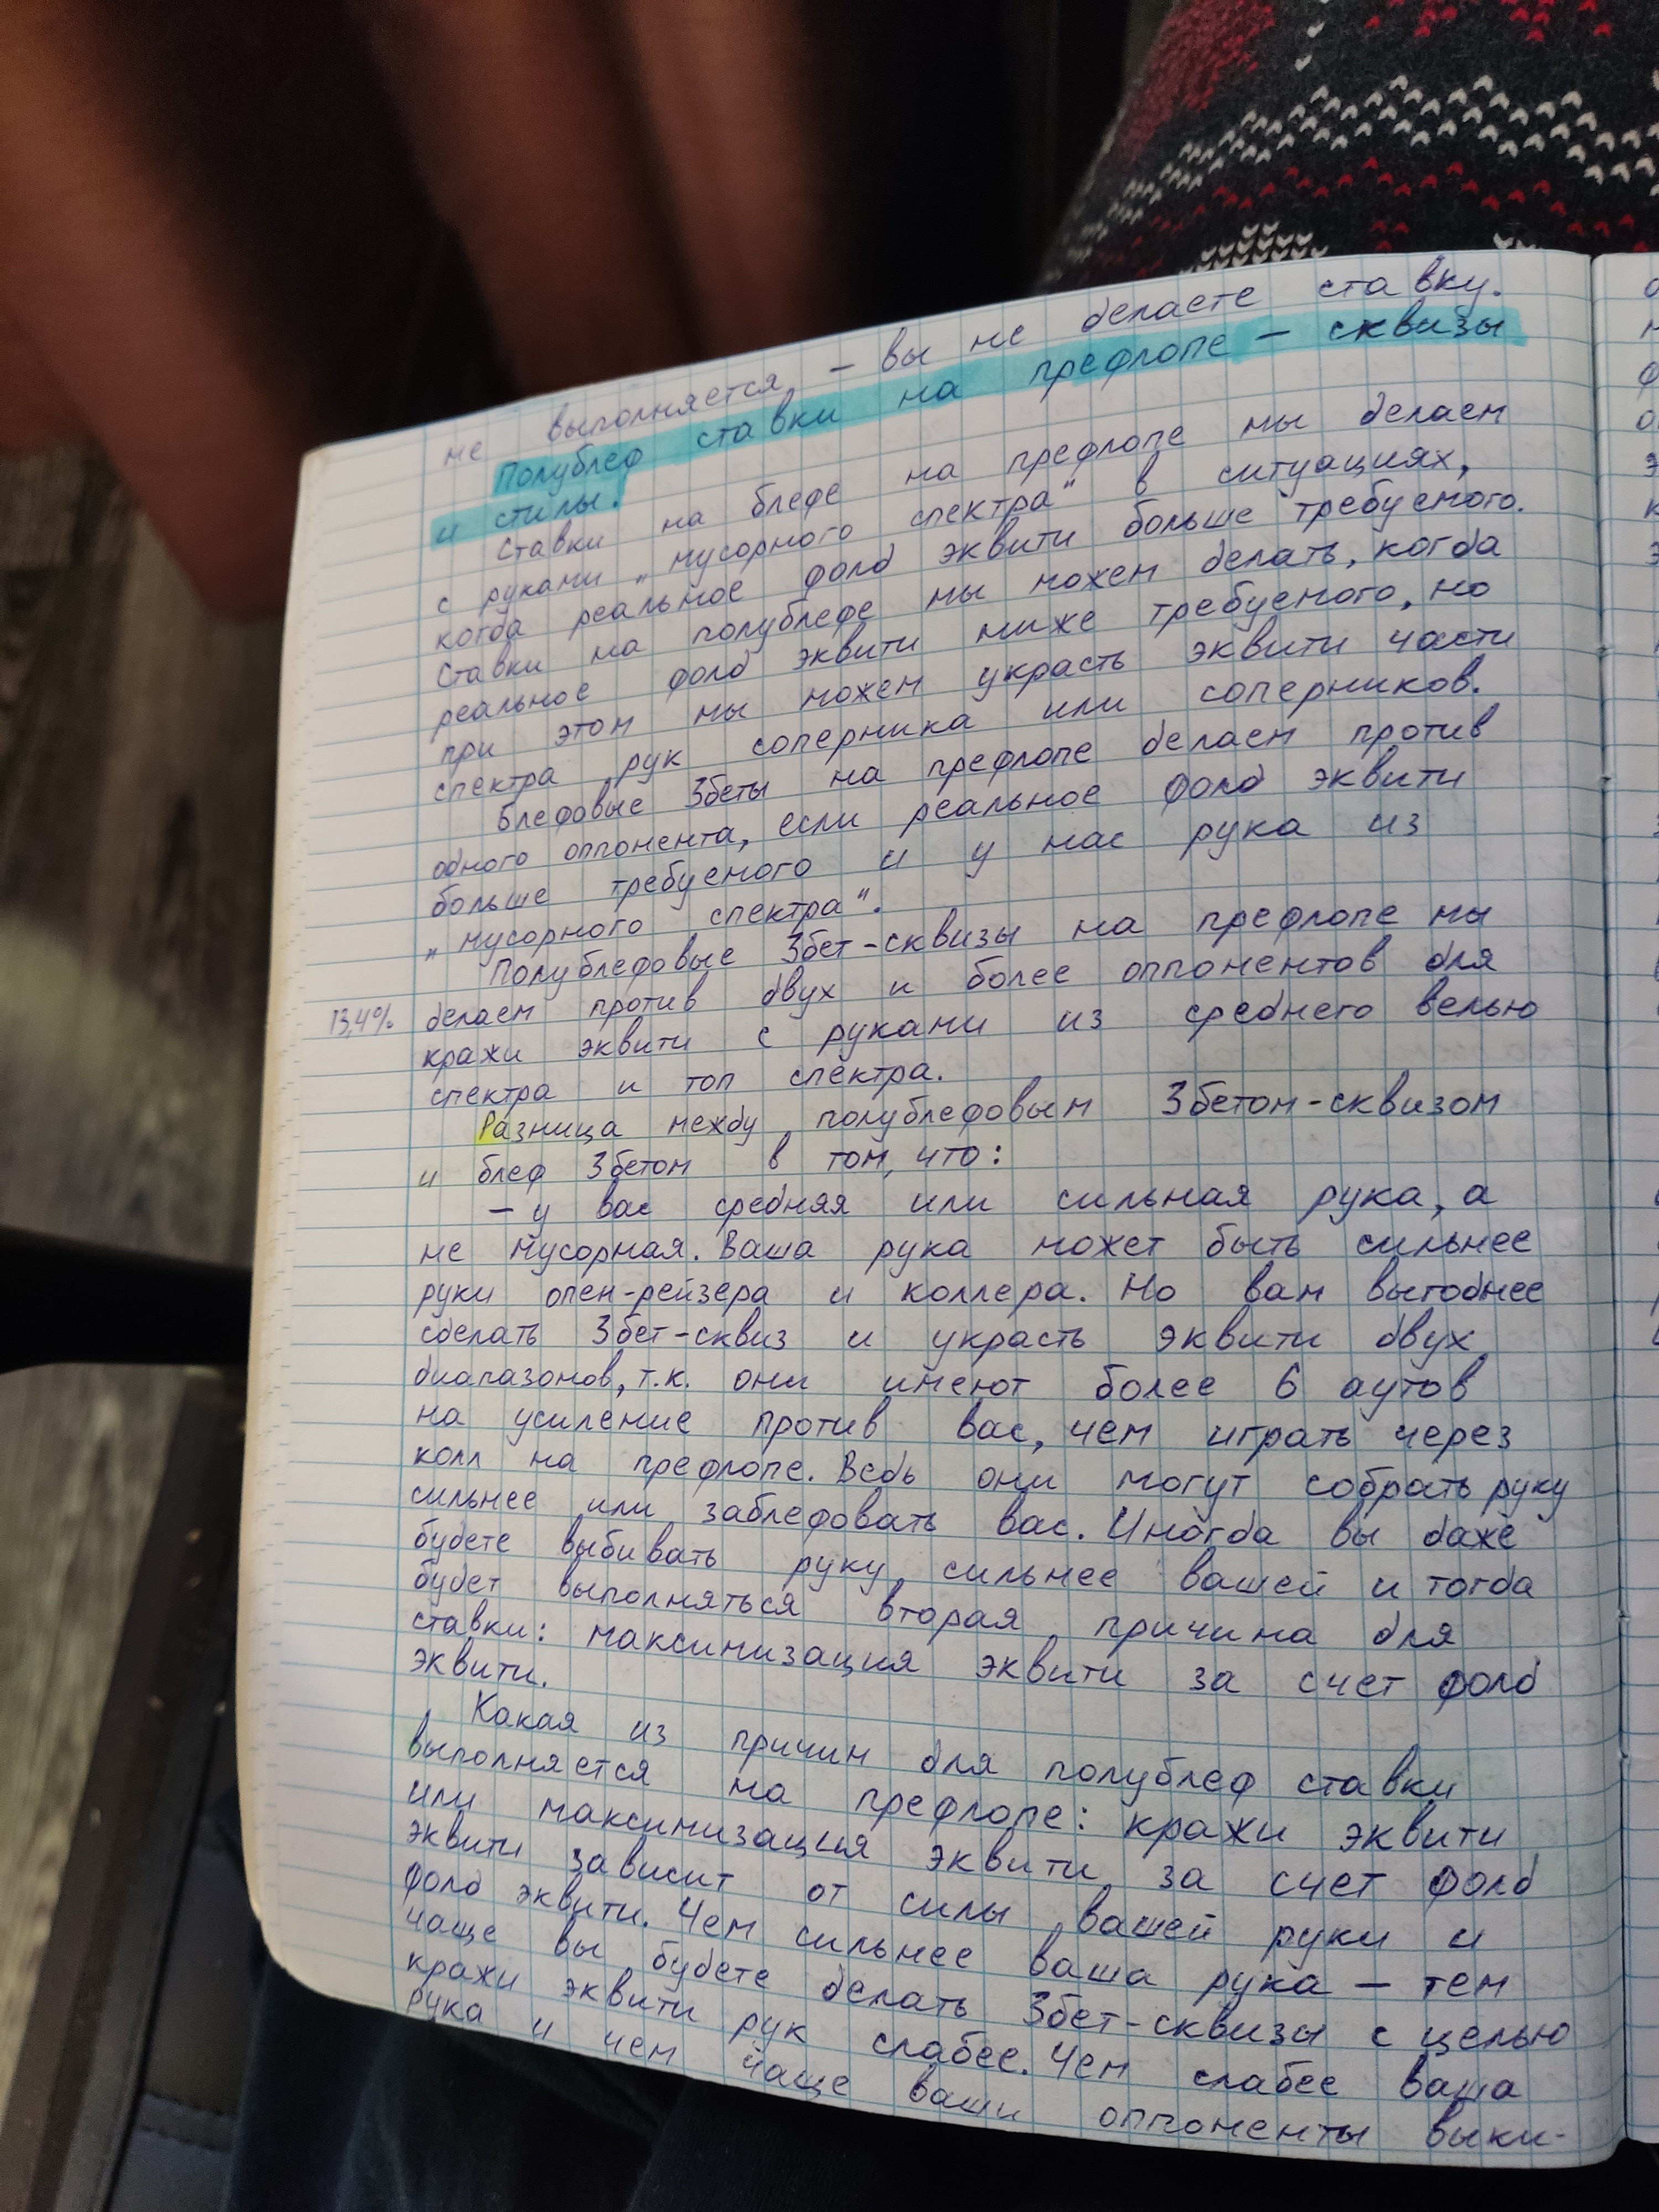 не выполняется, – вы не делаете ставку.
Полублеф ставки на префлопе – сквизы
и стилы.
Ставки на блефе на префлопе мы делаем
с руками „мусорного спектра" в ситуациях,
когда реальное фолд эквити больше требуемого.
Ставки на полублефе мы можем делать, когда
реальное фолд эквити ниже требуемого, но
при этом мы можем украсть эквити части
спектра рук соперника или соперников.
Блефовые 3беты на префлопе делаем против
одного оппонента, если реальное фолд эквити
больше требуемого и у нас рука из
„мусорного спектра".
Полублефовые 3бет-сквизы на префлопе мы
13,4% делаем против двух и более оппонентов для
кражи эквити с руками из среднего велью
спектра и топ спектра.
Разница между полублефовым 3бетом-сквизом
и блеф 3бетом в том, что:
– у вас средняя или сильная рука, а
не мусорная. Ваша рука может быть сильнее
руки опен-рейзера и коллера. Но вам выгоднее
сделать 3бет-сквиз и украсть эквити двух
диапазонов, т.к. они имеют более 6 аутов
на усиление против вас, чем играть через
колл на префлопе. Ведь они могут собрать руку
сильнее или заблефовать вас. Иногда вы даже
будете выбивать руку сильнее вашей и тогда
будет выполняться вторая причина для
ставки: максимизация эквити за счет фолд
эквити.
Какая из причин для полублеф ставки
выполняется на префлопе: кражи эквити
или максимизация эквити за счет фолд
эквити зависит от силы вашей руки и
фолд эквити. Чем сильнее ваша рука – тем
чаще вы будете делать 3бет-сквизы с целью
кражи эквити рук слабее. Чем слабее ваша
рука и чем чаще ваши оппоненты выки-